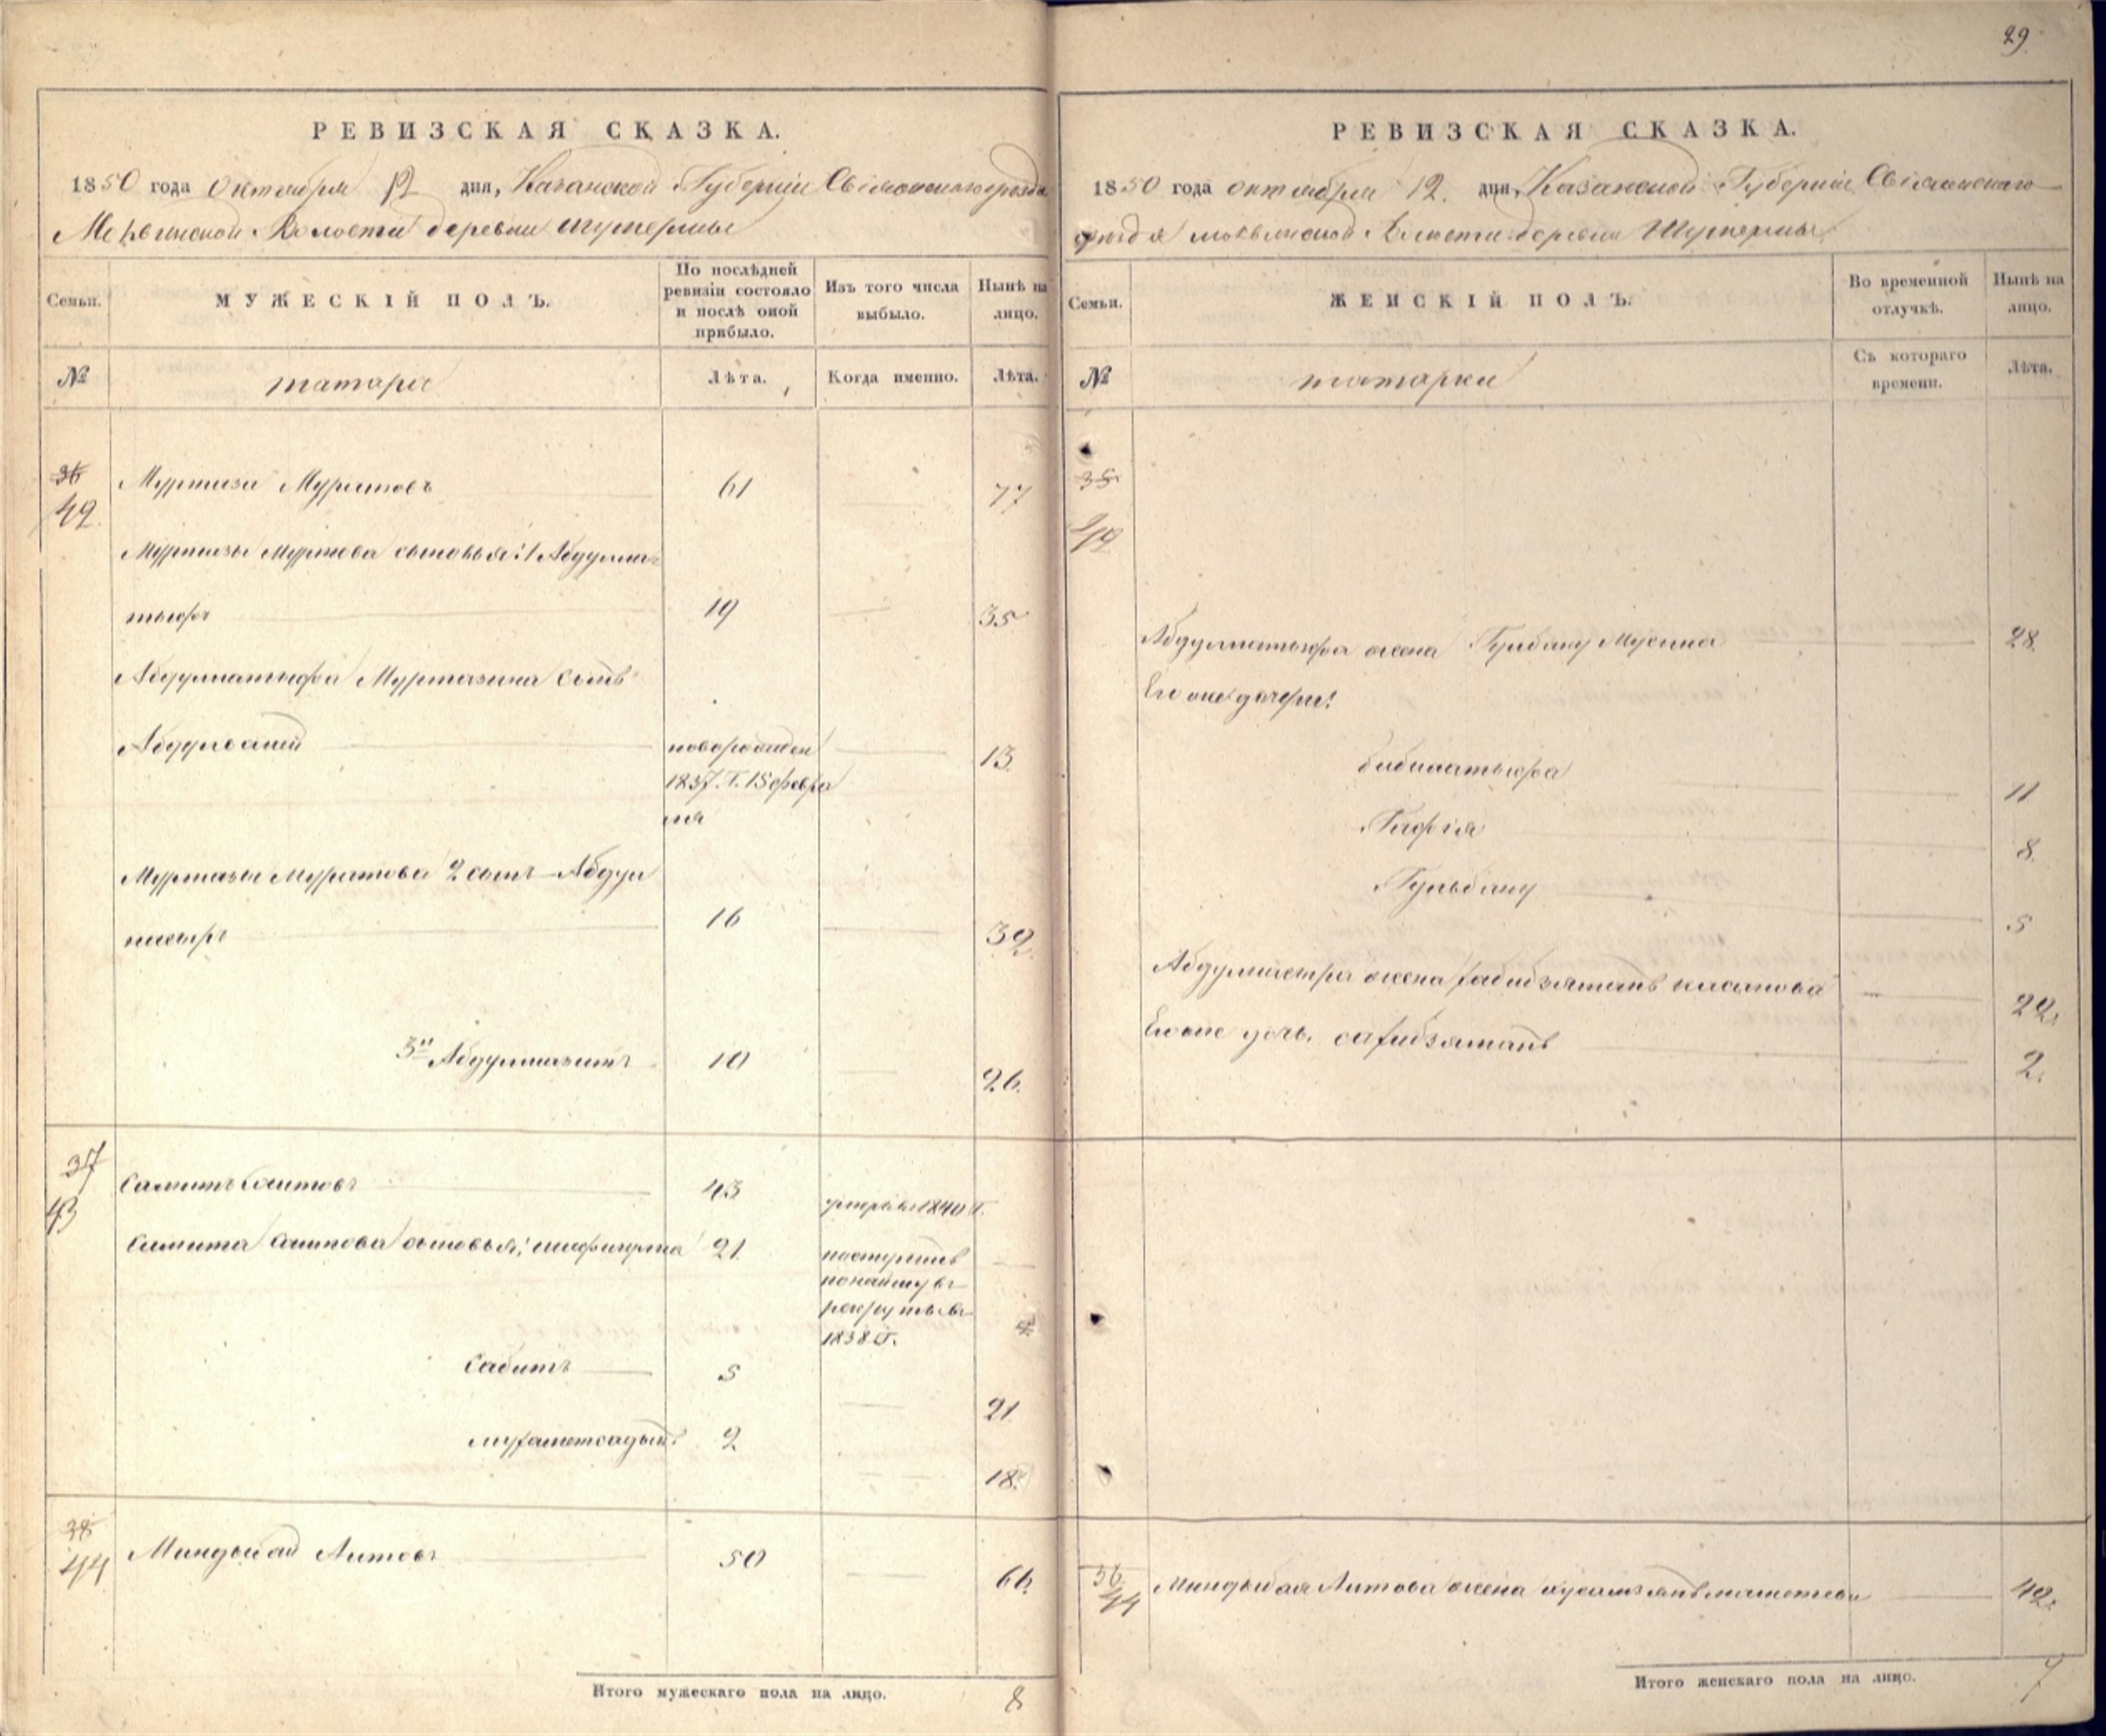 29
РЕВИЗСКАЯ СКАЗКА.
1850 года октября 12 дня, Казанской Губерніи Свіяжскаго уезда
Волости деревни Шутермы
Семьи.
МУЖЕСКІЙ ПОЛЪ.
По послѣдней ревизіи состояло и послѣ оной прибыло.
Изъ того числа выбыло.
Нынѣ на лицо.
№
татара
Лѣта.
Когда именно.
Лѣта.
36
42
Муртаза Муратовъ 61 77
Муртазы Муратова сыновья: 1 Абдулла-
тыфъ 19 35
Абдуллатыфа Муртазина сынъ
новорожден 13
1837. Г. 15 февра
ля
Муртазы Муратова 2 сынъ Абдул
насыръ 16 32
3й Абдулвагитъ 10 26.
37
43
Самитъ Саитовъ 43 умръ въ 1840 г.
Самита Саитова сыновья: 21 поступилъ
по найму въ
рекруты въ
1838 г.
Сабитъ 5 21
мухаметсадыкъ 2 18.
38
44
Миндыбай Аитовъ 50 66.
Итого мужескаго пола на лицо. 8
РЕВИЗСКАЯ СКАЗКА.
1850 года октября 12. дня, Казанской Губерніи Свіяжскаго
уезда Волости деревни Шутермы
Семьи.
ЖЕНСКІЙ ПОЛЪ.
Во временной отлучкѣ.
Нынѣ на лицо.
№
татарки
Съ котораго времени.
Лѣта.
35
42
Абдуллатыфа жена Гульбану Мусина 28.
Его же дочери:
бибилатыфа 11
Гафія 8.
Гульбану 5
Абдулнасыра жена хабибзямалъ 22.
Его же дочь. 2.
36.
44
Миндыбая Аитова жена 42.
Итого женскаго пола на лицо. 7